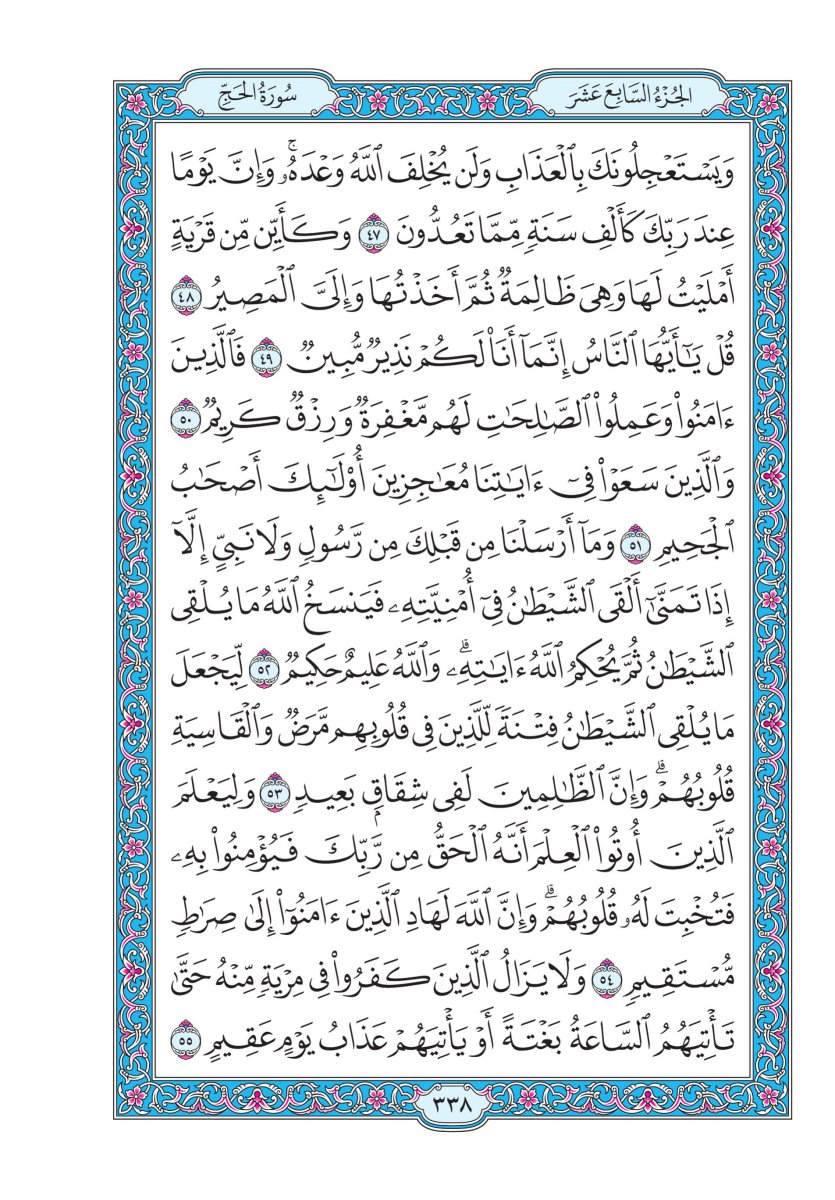 الجُزْءُ السَّابِعَ عَشَرَ
سُورَةُ الحَجِّ
وَيَسْتَعْجِلُونَكَ بِٱلْعَذَابِ وَلَن يُخْلِفَ ٱللَّهُ وَعْدَهُۥۚ وَإِنَّ يَوْمًا
عِندَ رَبِّكَ كَأَلْفِ سَنَةٖ مِّمَّا تَعُدُّونَ ٤٧ وَكَأَيِّن مِّن قَرْيَةٍ
أَمْلَيْتُ لَهَا وَهِيَ ظَالِمَةٞ ثُمَّ أَخَذْتُهَا وَإِلَيَّ ٱلْمَصِيرُ ٤٨
قُلْ يَٰٓأَيُّهَا ٱلنَّاسُ إِنَّمَآ أَنَا۠ لَكُمْ نَذِيرٞ مُّبِينٞ ٤٩ فَٱلَّذِينَ
ءَامَنُوا۟ وَعَمِلُوا۟ ٱلصَّٰلِحَٰتِ لَهُم مَّغْفِرَةٞ وَرِزْقٞ كَرِيمٞ ٥٠
وَٱلَّذِينَ سَعَوْا۟ فِيٓ ءَايَٰتِنَا مُعَٰجِزِينَ أُو۟لَٰٓئِكَ أَصْحَٰبُ
ٱلْجَحِيمِ ٥١ وَمَآ أَرْسَلْنَا مِن قَبْلِكَ مِن رَّسُولٖ وَلَا نَبِيٍّ إِلَّآ
إِذَا تَمَنَّىٰٓ أَلْقَى ٱلشَّيْطَٰنُ فِيٓ أُمْنِيَّتِهِۦ فَيَنسَخُ ٱللَّهُ مَا يُلْقِي
ٱلشَّيْطَٰنُ ثُمَّ يُحْكِمُ ٱللَّهُ ءَايَٰتِهِۦۗ وَٱللَّهُ عَلِيمٌ حَكِيمٞ ٥٢ لِّيَجْعَلَ
مَا يُلْقِي ٱلشَّيْطَٰنُ فِتْنَةٗ لِّلَّذِينَ فِي قُلُوبِهِم مَّرَضٞ وَٱلْقَاسِيَةِ
قُلُوبُهُمْۗ وَإِنَّ ٱلظَّٰلِمِينَ لَفِي شِقَاقِۭ بَعِيدٖ ٥٣ وَلِيَعْلَمَ
ٱلَّذِينَ أُوتُوا۟ ٱلْعِلْمَ أَنَّهُ ٱلْحَقُّ مِن رَّبِّكَ فَيُؤْمِنُوا۟ بِهِۦ
فَتُخْبِتَ لَهُۥ قُلُوبُهُمْۗ وَإِنَّ ٱللَّهَ لَهَادِ ٱلَّذِينَ ءَامَنُوٓا۟ إِلَىٰ صِرَٰطٖ
مُّسْتَقِيمٖ ٥٤ وَلَا يَزَالُ ٱلَّذِينَ كَفَرُوا۟ فِي مِرْيَةٖ مِّنْهُ حَتَّىٰ
تَأْتِيَهُمُ ٱلسَّاعَةُ بَغْتَةً أَوْ يَأْتِيَهُمْ عَذَابُ يَوْمٍ عَقِيمٍ ٥٥
٣٣٨